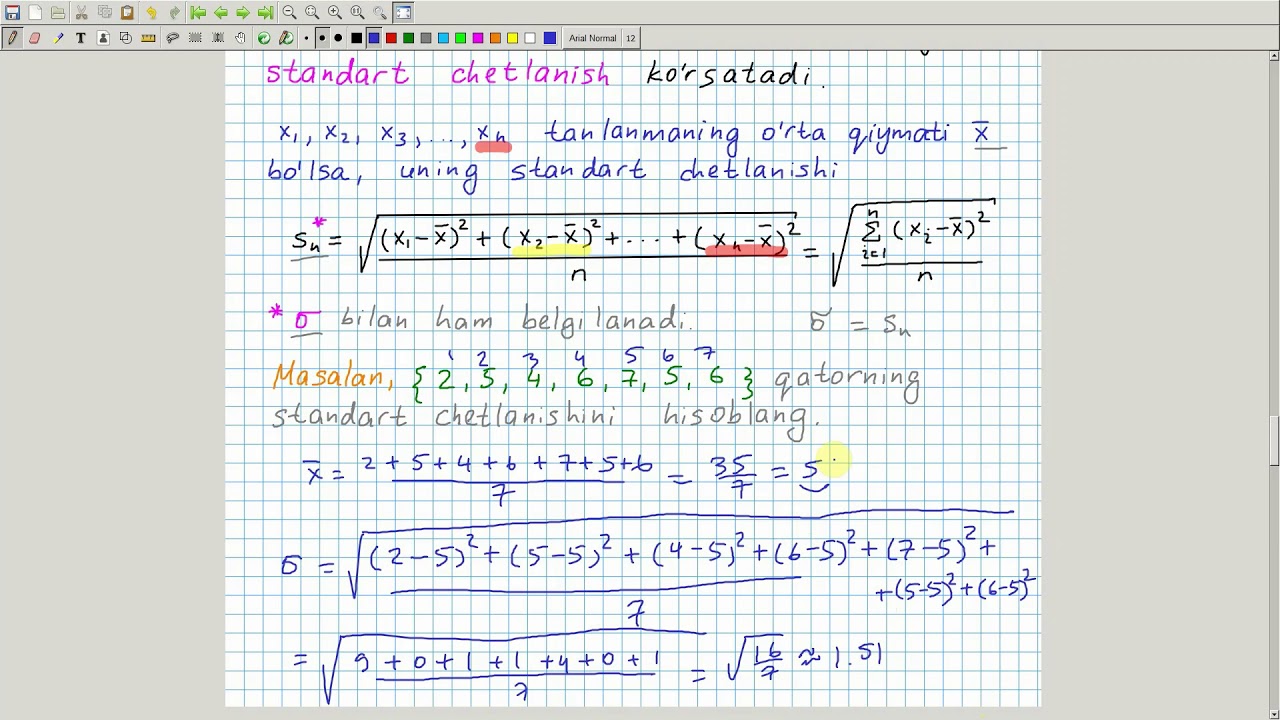 Arial Normal 12
standart chetlanish ko'rsatadi.
x₁, x₂, x₃, ..., xₙ tanlanmaning o'rta qiymati x̄
bo'lsa, uning standart chetlanishi
sₙ* = √(((x₁-x̄)² + (x₂-x̄)² + ... + (xₙ-x̄)²)/n) = √((Σᵢ₌₁ⁿ (xᵢ-x̄)²)/n)
* σ bilan ham belgilanadi. σ = sₙ
1 2 3 4 5 6 7
Masalan, {2, 5, 4, 6, 7, 5, 6} qatorning
standart chetlanishini hisoblang.
x̄ = (2+5+4+6+7+5+6)/7 = 35/7 = 5
σ = √(((2-5)² + (5-5)² + (4-5)² + (6-5)² + (7-5)² +
+(5-5)² + (6-5)²)/7)
= √((9+0+1+1+4+0+1)/7) = √(16/7) ≈ 1.51